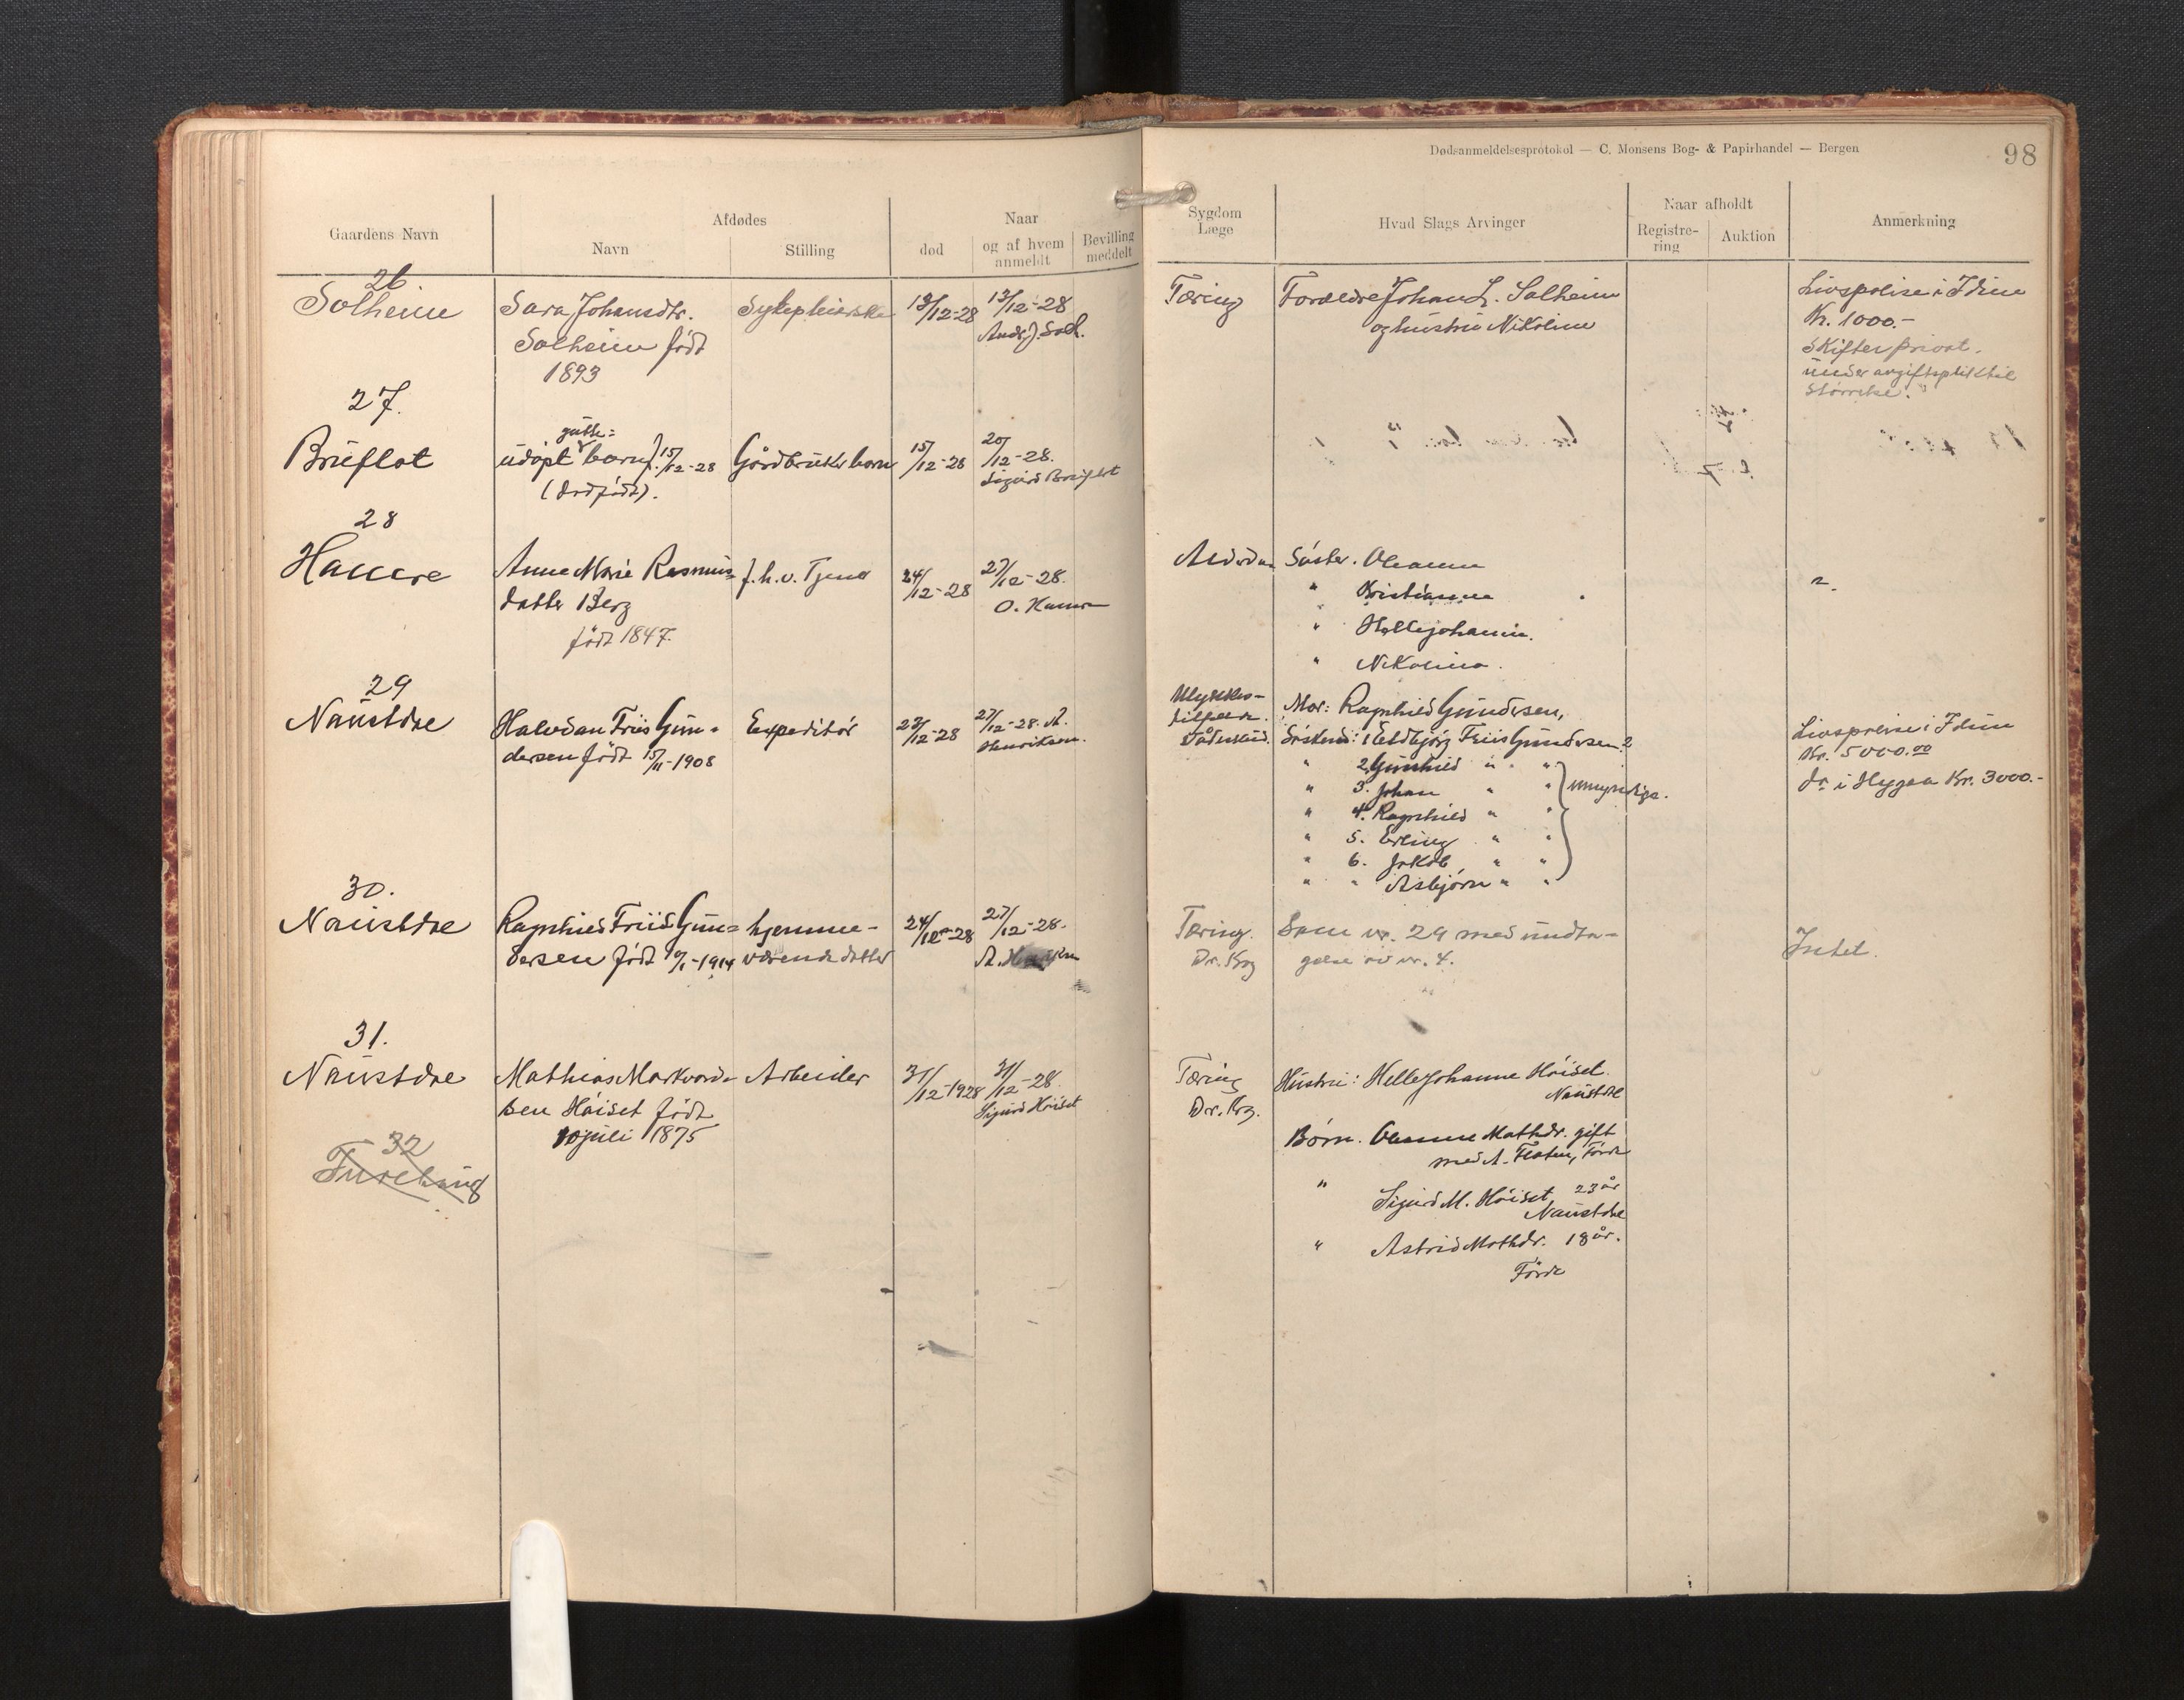 Dødsanmeldelsesprotokol — C. Monsens Bog- & Papirhandel — Bergen
98
Gaardens Navn
Afdødes
Navn
Stilling
Naar
død
og af hvem anmeldt
Bevilling meddelt
Sygdom
Læge
Hvad Slags Arvinger
Naar afholdt
Registre-
ring
Auktion
Anmerkning
26
Solheim
Sara Johansdtr.
Solheim født
1893
Sykepleierske
13/12-28
13/12-28
Tæring
Forældre Johan L. Solheim
og hustru Nikoline
Livspolise i Idun
Kr. 1000.-
Skifter privat.
under avgiftspliktil
størrelse.
27.
Bruflot
gutte-
udøpt barn f. 15/12-28
(dødfødt).
Gårdbruker barn
15/12-28
20/12-28.
Sigurd Bruflot
28
Hamre
Anne Marie Rasmus-
datter Berg
født 1847.
f.h.v. Tjener
24/12-28
27/12-28.
O. Hamre
Alderdom
Søster. Oleanna
" Kristianna
" Hellejohanne.
" Nikolina.
29
Naustdal
Halvdan Friis Gun-
dersen født 15/11-1908
Expeditør
23/12-28
27/12-28. A.
Henriksen.
Ulykkes-
tilfælde.
Mor: Ragnhild Gundersen,
Søskend: 1 Eldbjørg Friis Gundersen
" 2 Gunhild " "
" 3. Johan " " umyndige.
" 4. Ragnhild " "
" 5. Erling " "
" 6. Jakob " "
" " Asbjørn " "
Livspolise i Idun
Kr. 5000.00
do i Hygea Kr. 3000.-
30.
Naustdal
Ragnhild Friis Gun-
dersen født 10/1-1914
hjemme-
værende datter
24/12-28
27/12-28.
Tæring.
Dr. Krog
Som nr. 29 med undta-
gelse av nr. 4.
Intet.
31.
Naustdal
Mathias Markvard-
sen Høiset født
10 juli 1875
Arbeider
31/12-1928
31/12-28
Sigurd Høiset
Tæring
Dr. Krg.
Hustru: Helle Johanne Høiset.
Naustdal
Børn. Oleanne Mathdr. gift
med A. Flaten, Førde
" Sigurd M. Høiset 23 år
Naustdal
" Astrid Mathdr. 18 år.
Førde
32